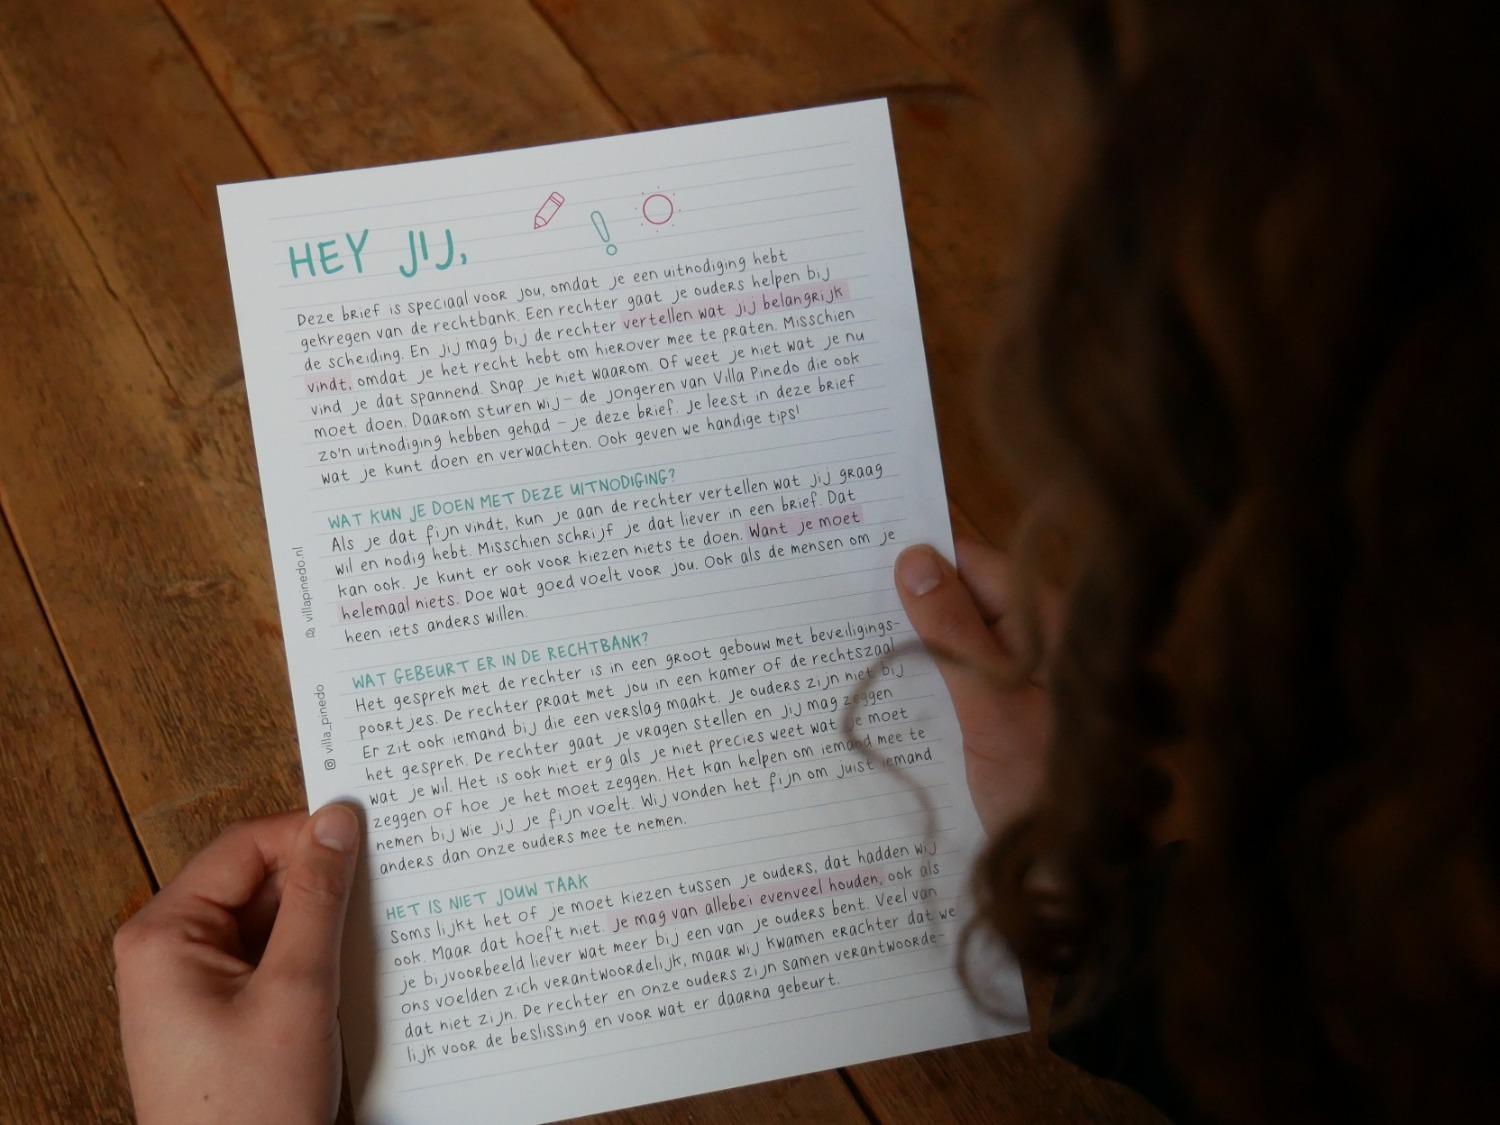 HEY JIJ,
Deze brief is speciaal voor jou, omdat je een uitnodiging hebt
gekregen van de rechtbank. Een rechter gaat je ouders helpen bij
de scheiding. En jij mag bij de rechter vertellen wat jij belangrijk
vindt, omdat je het recht hebt om hierover mee te praten. Misschien
vind je dat spannend. Snap je niet waarom. Of weet je niet wat je nu
moet doen. Daarom sturen wij – de jongeren van Villa Pinedo die ook
zo'n uitnodiging hebben gehad – je deze brief. Je leest in deze brief
wat je kunt doen en verwachten. Ook geven we handige tips!
WAT KUN JE DOEN MET DEZE UITNODIGING?
Als je dat fijn vindt, kun je aan de rechter vertellen wat jij graag
wil en nodig hebt. Misschien schrijf je dat liever in een brief. Dat
kan ook. Je kunt er ook voor kiezen niets te doen. Want je moet
helemaal niets. Doe wat goed voelt voor jou. Ook als de mensen om je
heen iets anders willen.
WAT GEBEURT ER IN DE RECHTBANK?
Het gesprek met de rechter is in een groot gebouw met beveiligings-
poortjes. De rechter praat met jou in een kamer of de rechtszaal.
Er zit ook iemand bij die een verslag maakt. Je ouders zijn niet bij
het gesprek. De rechter gaat je vragen stellen en jij mag zeggen
wat je wil. Het is ook niet erg als je niet precies weet wat je moet
zeggen of hoe je het moet zeggen. Het kan helpen om iemand mee te
nemen bij wie jij je fijn voelt. Wij vonden het fijn om juist iemand
anders dan onze ouders mee te nemen.
HET IS NIET JOUW TAAK
Soms lijkt het of je moet kiezen tussen je ouders, dat hadden wij
ook. Maar dat hoeft niet. Je mag van allebei evenveel houden, ook als
je bijvoorbeeld liever wat meer bij een van je ouders bent. Veel van
ons voelden zich verantwoordelijk, maar wij kwamen erachter dat we
dat niet zijn. De rechter en onze ouders zijn samen verantwoorde-
lijk voor de beslissing en voor wat er daarna gebeurt.
villapinedo.nl
villa_pinedo